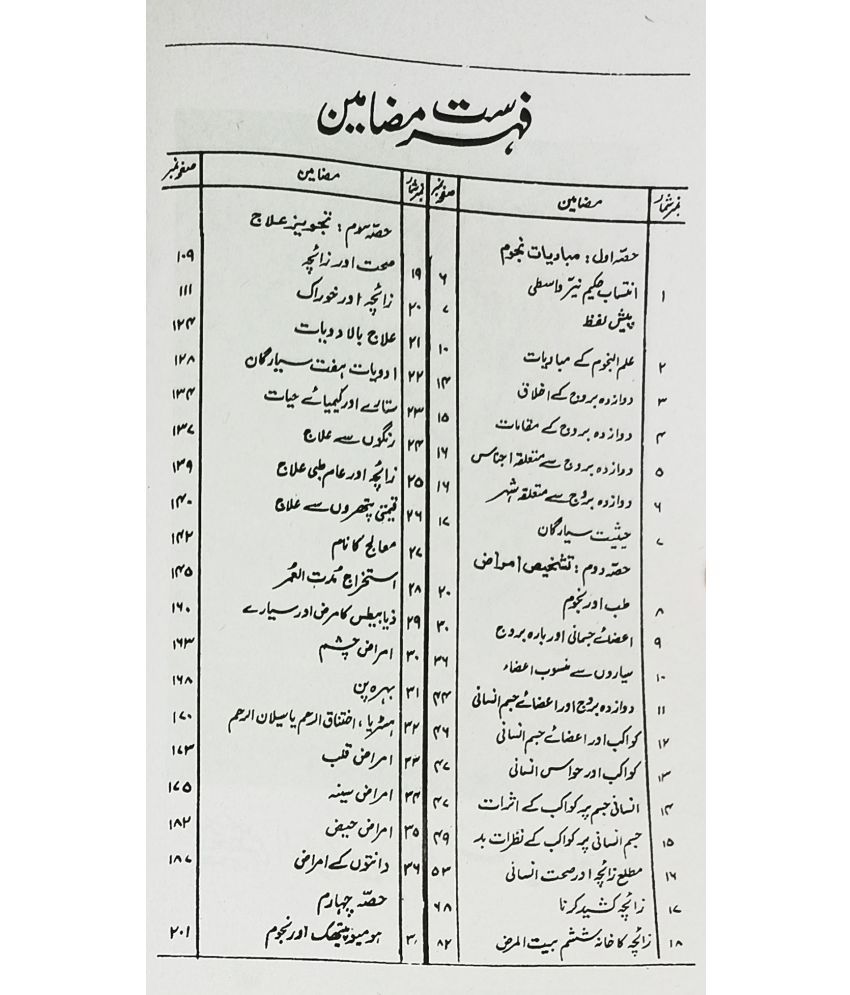 فہرست مضامین
نمبر شمار مضامین صفحہ نمبر
حصہ اول: مبادیات نجوم
۱ انتساب حکیم نیر واسطی ۶
پیش لفظ ۷
۲ علم النجوم کے مبادیات ۱۰
۳ دوازدہ بروج کے اخلاق ۱۴
۴ دوازدہ بروج کے مقامات ۱۵
۵ دوازدہ بروج سے متعلقہ اجناس ۱۶
۶ دوازدہ بروج سے متعلقہ شہر ۱۶
۷ حیثیت سیارگان ۱۷
حصہ دوم: تشخیص امراض
۸ طب اور نجوم ۲۰
۹ اعضائے جسمانی اور بارہ بروج ۳۰
۱۰ سیاروں سے منسوب اعضاء ۳۶
۱۱ دوازدہ بروج اور اعضائے جسم انسانی ۴۴
۱۲ کواکب اور اعضائے جسم انسانی ۴۶
۱۳ کواکب اور حواس انسانی ۴۷
۱۴ انسانی جسم پر کواکب کے اثرات ۴۷
۱۵ جسم انسانی پر کواکب کے نظرات بد ۴۹
۱۶ مطلع زائچہ اور صحت انسانی ۵۳
۱۷ زائچہ کشید کرنا ۶۸
۱۸ زائچہ کا خانہ ششم بیت المرض ۸۲
نمبر شمار مضامین صفحہ نمبر
حصہ سوم: تجویز علاج
۱۹ صحت اور زائچہ ۱۰۹
۲۰ زائچہ اور خوراک ۱۱۱
۲۱ علاج بالادویات ۱۲۴
۲۲ ادویات ہفت سیارگان ۱۲۸
۲۳ ستارے اور کیمیائے حیات ۱۳۴
۲۴ رنگوں سے علاج ۱۳۷
۲۵ زائچہ اور عام طبی علاج ۱۳۹
۲۶ قیمتی پتھروں سے علاج ۱۴۰
۲۷ معالج کا نام ۱۴۲
۲۸ استخراج مدت العمر ۱۴۵
۲۹ ذیابیطس کا مرض اور سیارے ۱۶۰
۳۰ امراض چشم ۱۶۳
۳۱ بہرہ پن ۱۶۸
۳۲ ہسٹریا، اختناق الرحم یا سیلان الرحم ۱۷۰
۳۳ امراض قلب ۱۷۳
۳۴ امراض سینہ ۱۷۵
۳۵ امراض حیض ۱۸۲
۳۶ دانتوں کے امراض ۱۸۷
حصہ چہارم
ہومیوپیتھک اور نجوم ۲۰۱